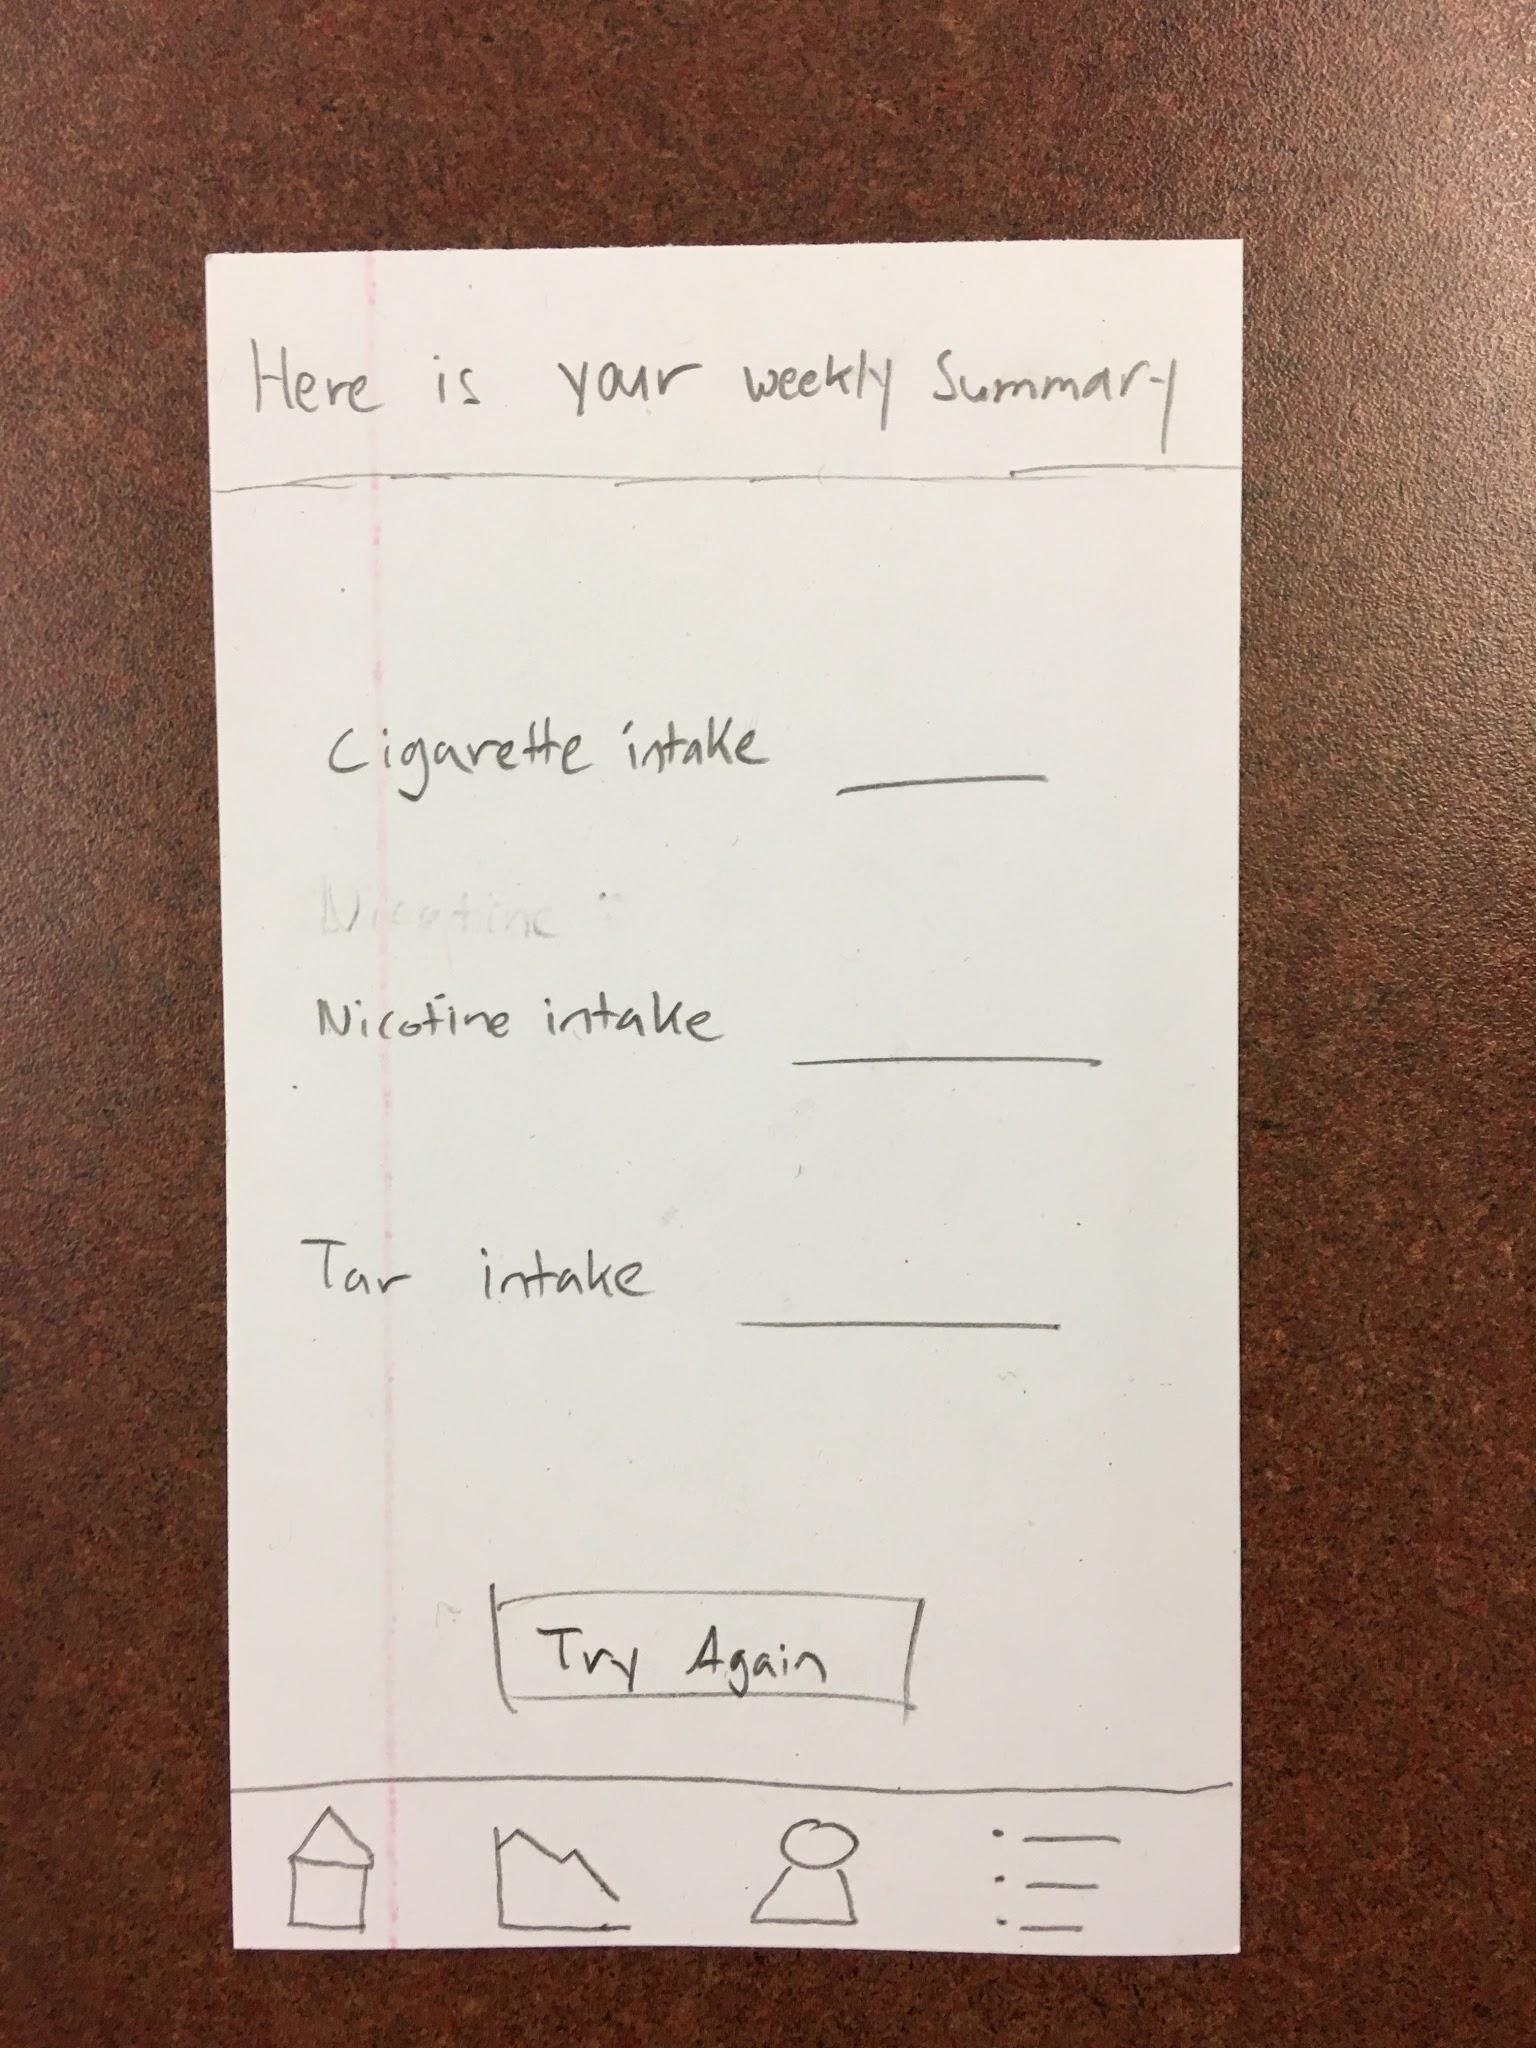 Here is your weekly Summary
Cigarette intake
Nicotine
Nicotine intake
Tar intake
Try Again